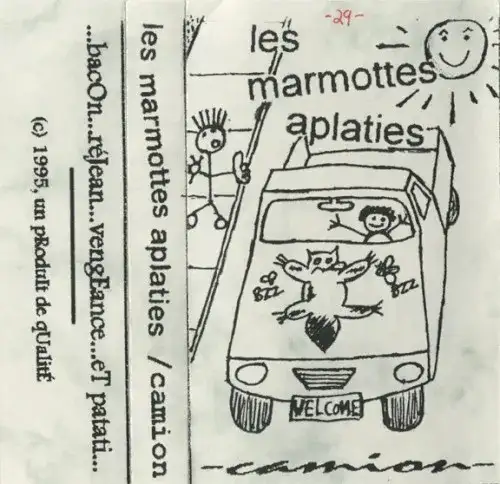 ...bacOn...réJean...vengEance...eT patati...
(c) 1995, un pRoduIt de qUalitÉ
les marmottes aplaties /camion
-29-
les
marmottes
aplaties
BZZ
BZZ
WELCOME
-camion-